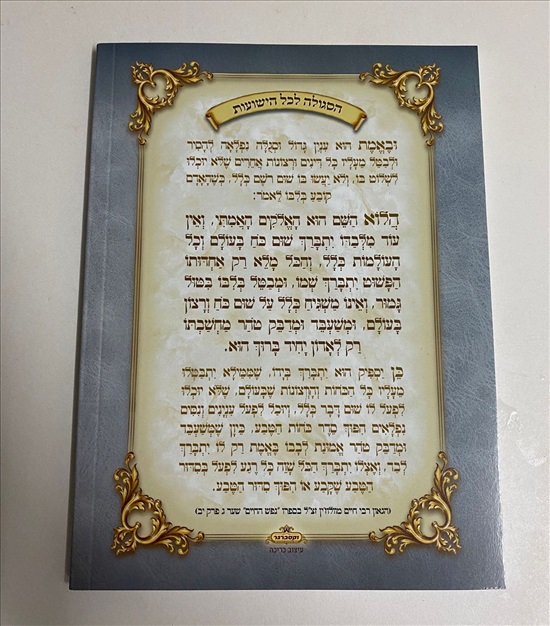 הסגולה לכל הישועות
וּבֶאֱמֶת הוּא עִנְיָן גָּדוֹל וּסְגֻלָּה נִפְלָאָה לְהָסִיר
וּלְבַטֵּל מֵעָלָיו כָּל דִּינִים וּרְצוֹנוֹת אֲחֵרִים שֶׁלֹּא יוּכְלוּ
לִשְׁלוֹט בּוֹ, וְלֹא יַעֲשׂוּ בּוֹ שׁוּם רֹשֶׁם כְּלָל, כְּשֶׁהָאָדָם
קוֹבֵעַ בְּלִבּוֹ לֵאמֹר:
הֲלוֹא הַשֵּׁם הוּא הָאֱלֹקִים הָאֲמִתִּי, וְאֵין
עוֹד מִלְּבַדּוֹ יִתְבָּרַךְ שׁוּם כֹּחַ בָּעוֹלָם וְכָל
הָעוֹלָמוֹת כְּלָל, וְהַכֹּל מָלֵא רַק אַחְדוּתוֹ
הַפָּשׁוּט יִתְבָּרַךְ שְׁמוֹ, וּמְבַטֵּל בְּלִבּוֹ בִּטּוּל
גָּמוּר, וְאֵינוֹ מַשְׁגִּיחַ כְּלָל עַל שׁוּם כֹּחַ וְרָצוֹן
בָּעוֹלָם, וּמְשַׁעְבֵּד וּמְדַבֵּק טֹהַר מַחֲשַׁבְתּוֹ
רַק לְאָדוֹן יָחִיד בָּרוּךְ הוּא.
כֵּן יַסְפִּיק הוּא יִתְבָּרַךְ בְּיָדוֹ, שֶׁמִּמֵּילָא יִתְבַּטְּלוּ
מֵעָלָיו כָּל הַכֹּחוֹת וְהָרְצוֹנוֹת שֶׁבָּעוֹלָם, שֶׁלֹּא יוּכְלוּ
לִפְעֹל לוֹ שׁוּם דָּבָר כְּלָל, וְיוּכַל לִפְעֹל עִנְיָנִים וְנִסִּים
נִפְלָאִים הִפּוּךְ סֵדֶר כֹּחוֹת הַטֶּבַע, כֵּיוָן שֶׁמְּשַׁעְבֵּד
וּמְדַבֵּק טֹהַר אֱמוּנַת לְבָבוֹ בֶּאֱמֶת רַק לוֹ יִתְבָּרַךְ
לְבַד, וְאֶצְלוֹ יִתְבָּרַךְ הַכֹּל שָׁוֶה כָּל רֶגַע לִפְעֹל בְּסִדּוּר
הַטֶּבַע שֶׁקָּבַע אוֹ הִפּוּךְ סִדּוּר הַטֶּבַע.
(הגאון רבי חיים מוולוז'ין זצ"ל בספרו 'נפש החיים' שער ג פרק יב)
וקסברגר
עיצוב כריכה